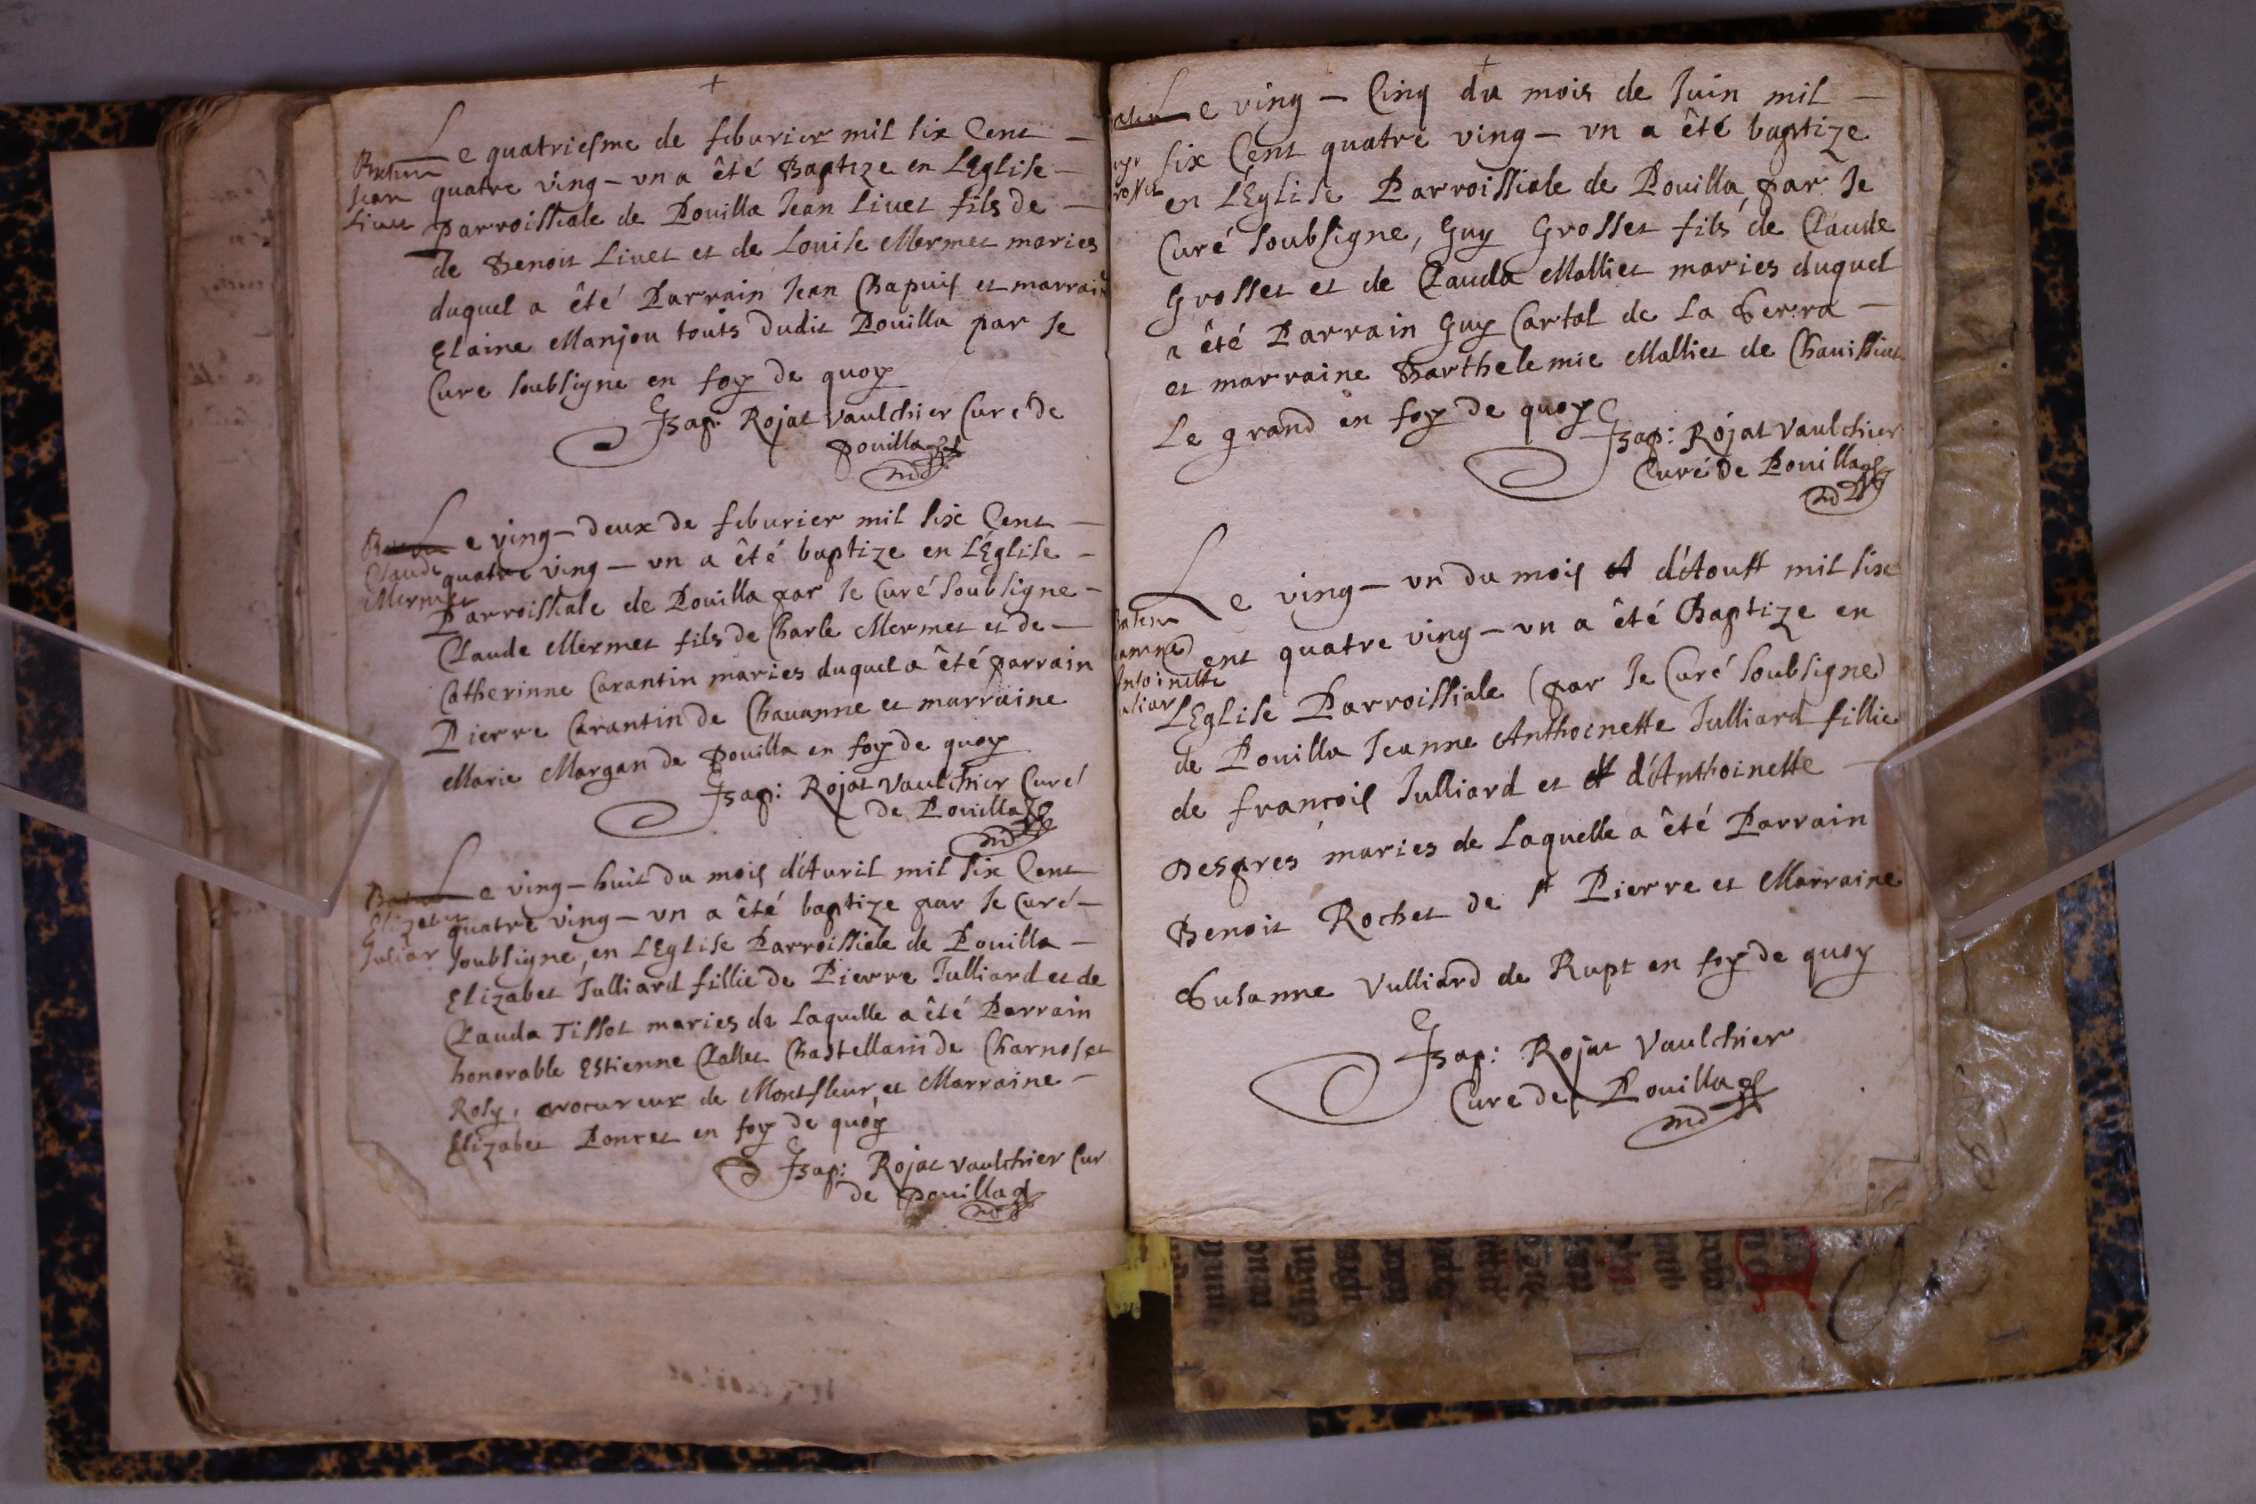 Le quatriesme de feburier mil six Cent
quatre ving-un a êté Baptize en LEglise
parroissiale de Pouilla Jean Livet fils de
de Benoit Livet et de Louise Mermet maries
duquel a êté Parrain Jean Chapuis et marraine
Claine Manjou touts dudit Pouilla par Je
Cure soubsigne en foy de quoy
Bap: Rojat Vaulchier Curé de
pouilla
Jean
Livet
Le ving-deux de feburier mil six Cent
quatre ving-un a êté baptize en LÉglise
Parroissiale de Pouilla par Je Curé soubsigne
Claude Mermet fils de Charle Mermet et de
Catherinne Carantin maries duquel a êté parrain
Pierre Carantin de Chavanne et marraine
Marie Morgan de Pouilla en foy de quoy
Bap: Rojat Vaulchier Curé
de Pouilla
Claude
Mermet
Le ving-huit du mois d'Avril mil six Cent
quatre ving-un a êté baptize par Je Curé
soubsigne, en LEglise Parroissiale de Pouilla
Elizabet Julliard fillie de Pierre Julliard et de
Clauda Tissot maries de Laquelle a êté Parrain
honorable Estienne Clallet Chastellain de Charnoset
Rosy, procureur de Montfleur, et Marraine
Elizabet Poncet en foy de quoy
Bap: Rojat Vaulchier Cur
de pouilla
Elizabet
Juliar
Le ving-Cinq du mois de Juin mil
six Cent quatre ving-un a êté baptize
en LÉglise Parroissiale de Pouilla, par Je
Curé soubsigne, Guy Grosset fils de Claude
Grosset et de Clauda Malliet maries duquel
a êté Parrain Guy Cartal de La Serra
et marraine Barthelemie Malliet de Chavissiat
Le grand en foy de quoy
Bap: Rojat Vaulchier
Curé de Pouilla
Le ving-un du mois d'Aoust mil six
Cent quatre ving-un a êté Baptize en
LEglise Parroissiale (par Je Curé soubsigne)
de Pouilla Jeanne Anthoinette Julliard fillie
de françois Julliard et d'Anthoinette
Despres maries de Laquelle a êté Parrain
Benoit Rochet de st Pierre et Marraine
Susanne Vulliard de Rupt en foy de quoy
Bap: Rojat Vaulchier
Cure de Pouilla